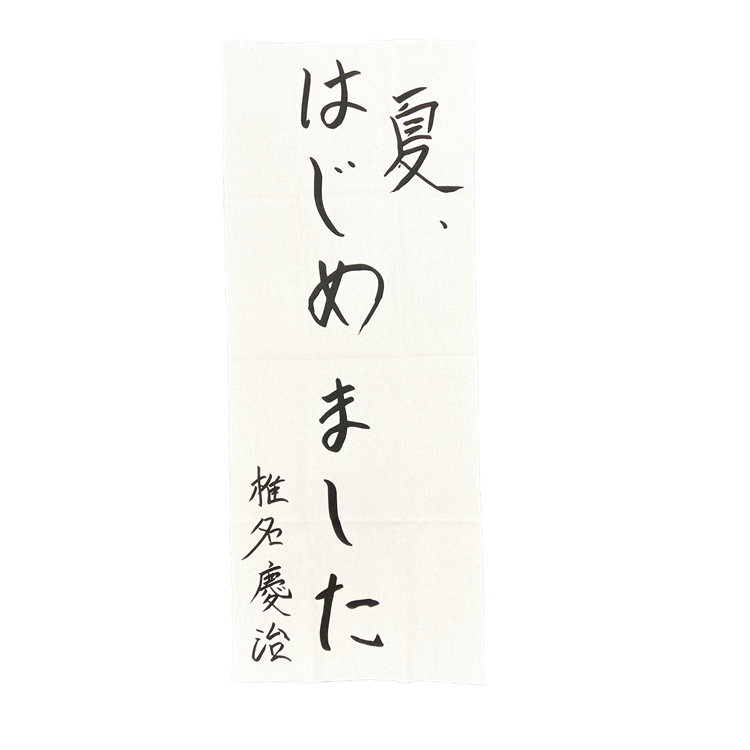 夏、
はじめました
椎名慶治